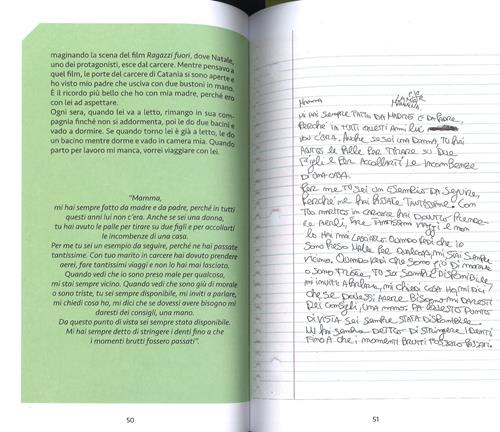 maginando la scena del film Ragazzi fuori, dove Natale,
uno dei protagonisti, esce dal carcere. Mentre pensavo a
quel film, le porte del carcere di Catania si sono aperte e
ho visto mio padre che usciva con due bustoni in mano.
È il ricordo più bello che ho con mia madre, perché ero
con lei ad aspettare.
Ogni sera, quando lei va a letto, rimango in sua com-
pagnia finché non si addormenta, poi le do due bacini e
vado a dormire. Se quando torno lei è già a letto, le do
un bacino mentre dorme e vado in camera mia. Quando
parto per lavoro mi manca, vorrei viaggiare con lei.
"Mamma,
mi hai sempre fatto da madre e da padre, perché in tutti
questi anni lui non c'era. Anche se sei una donna,
tu hai avuto le palle per tirare su due figli e per accollarti
le incombenze di una casa.
Per me tu sei un esempio da seguire, perché ne hai passate
tantissime. Con tuo marito in carcere hai dovuto prendere
aerei, fare tantissimi viaggi e non lo hai mai lasciato.
Quando vedi che io sono preso male per qualcosa,
mi stai sempre vicino. Quando vedi che sono giù di morale
o sono triste, tu sei sempre disponibile, mi inviti a parlare,
mi chiedi cosa ho, mi dici che se dovessi avere bisogno mi
daresti dei consigli, una mano.
Da questo punto di vista sei sempre stata disponibile.
Mi hai sempre detto di stringere i denti fino a che
i momenti brutti fossero passati".
50
Mamma
MI HAI SEMPRE FATTO DA MADRE E DA PADRE,
PERCHÉ IN TUTTI QUESTI ANNI LUI
NON C'ERA. ANCHE SE SEI UNA DONNA, TU HAI
AVUTO LE PALLE PER TIRARE SU DUE
FIGLI E PER ACCOLLARTI LE INCOMBENZE
DI UNA CASA.
PER ME TU SEI UN ESEMPIO DA SEGUIRE,
PERCHÉ NE HAI PASSATE TANTISSIME. CON
TUO MARITO IN CARCERE HAI DOVUTO PRENDE
RE AEREI, FARE TANTISSIMI VIAGGI E NON
LO HAI MAI LASCIATO. QUANDO VEDI CHE IO
SONO PRESO MALE PER QUALCOSA, MI STAI SEMPRE
VICINO. QUANDO VEDI CHE SONO GIÙ DI MORALE
O SONO TRISTE, TU SEI SEMPRE DISPONIBILE
MI INVITI A PARLARE, MI CHIEDI COSA HO, MI DICI
CHE SE DOVESSI AVERE BISOGNO MI DARESTI
DEI CONSIGLI, UNA MANO. DA QUESTO PUNTO
DI VISTA SEI SEMPRE STATA DISPONIBILE.
MI HAI SEMPRE DETTO DI STRINGERE I DENTI
FINO A CHE I MOMENTI BRUTTI FOSSERO PASSATI.
51